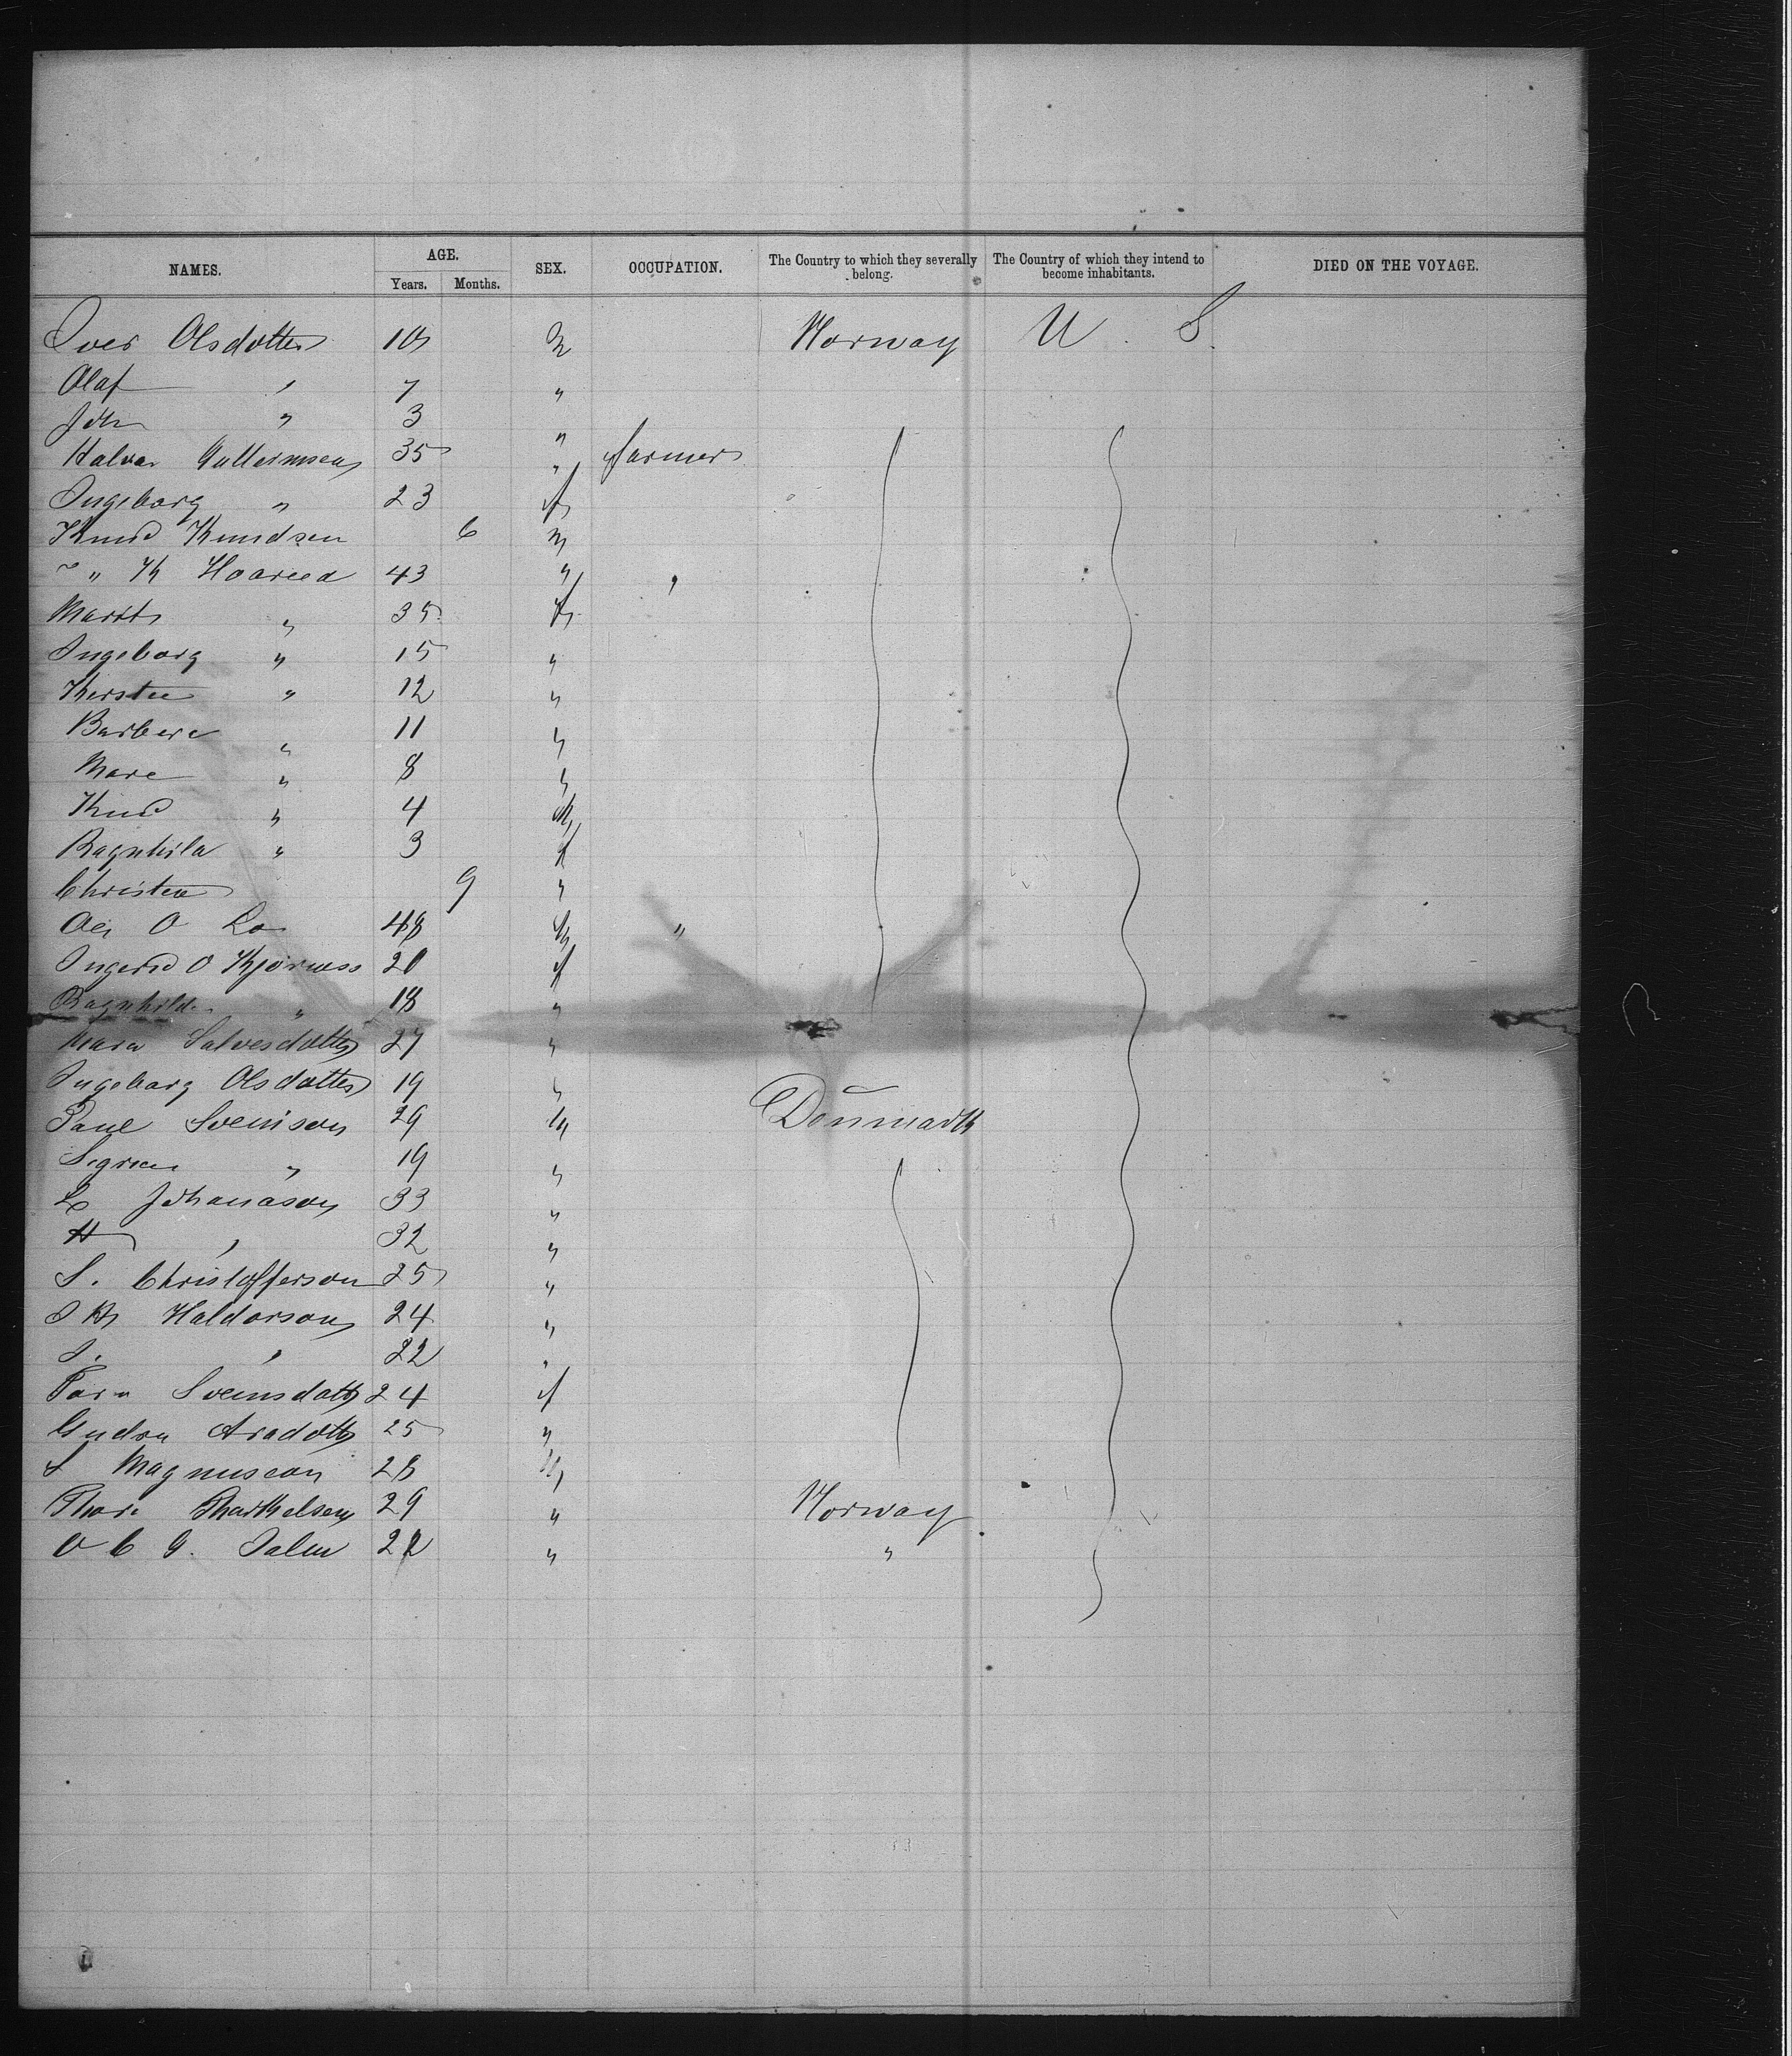 NAMES. AGE. SEX. OCCUPATION. The Country to which they severally belong. The Country of which they intend to become inhabitants. DIED ON THE VOYAGE.
Years. Months.
Iver Olsdotter 10 m Norway U. S.
Olaf " 7 "
John " 3 "
Halvar 35 " farmer
Ingeborg " 23 f
Knud Knudsen 6 m
" K 43 " "
Marit " 35 f
Ingeborg " 15 "
Kersten " 12 "
Barbera " 11 "
Mare " 8 "
Knud " 4 m
Ragnhild " 3 f
Christen 9 "
O Lo 48 m "
Ingerid O 20 f
Ragnhild " 18 "
Mara Salvesdotter 27 "
Ingeborg Olsdotter 19 "
Paul Svenison 29 m Denmark
" 19 "
Johanason 33 "
H " 32 "
S. Christofferson 25 "
Haldorson 24 "
" 22 "
Sveinsdotter 24 f
Gudrn Aradotter 25 "
S Magnuson 28 m
Thore Thorkelsen 29 " Norway
O C G. 22 " "